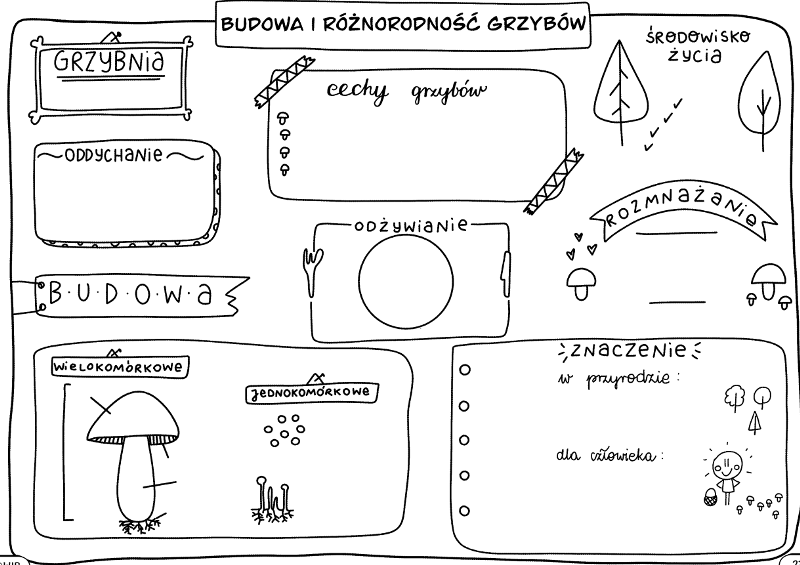 BUDOWA I RÓŻNORODNOŚĆ GRZYBÓW
GRZYBNIA
cechy grzybów
ŚRODOWISKO
ŻYCIA
ODDYCHANIE
ROZMNAŻANIE
ODŻYWIANIE
B·U·D·O·W·A
WIELOKOMÓRKOWE
JEDNOKOMÓRKOWE
ZNACZENIE
w przyrodzie:
dla człowieka: